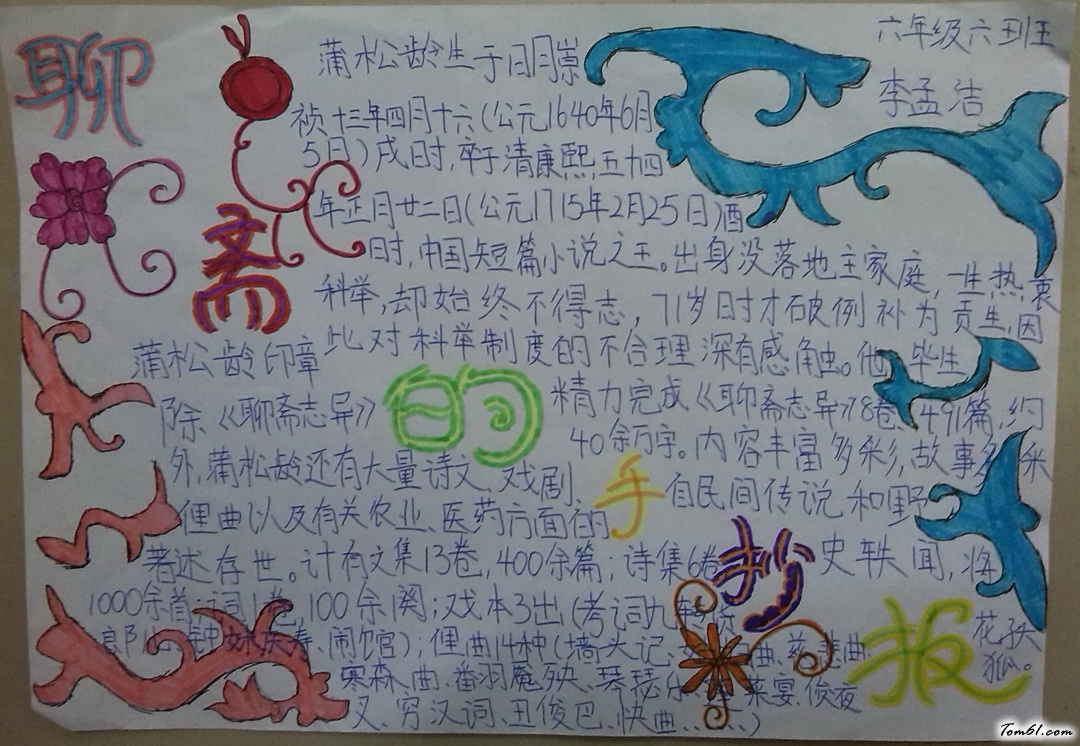 聊
斋
的
手
抄
报
六年级六班王
李孟洁
蒲松龄生于明崇
祯十三年四月十六(公元1640年6月
5日)戌时,卒于清康熙五十四
年正月廿二日(公元1715年2月25日)酉
时,中国短篇小说之王。出身没落地主家庭,一生热衷
科举,却始终不得志,71岁时才破例补为贡生,因
此对科举制度的不合理深有感触。他毕生
精力完成《聊斋志异》8卷、491篇,约
40余万字。内容丰富多彩,故事多采
自民间传说和野
史轶闻,将
花妖
狐。
蒲松龄印章
除《聊斋志异》
外,蒲松龄还有大量诗文、戏剧、
俚曲以及有关农业、医药方面的
著述存世。计有文集13卷,400余篇;诗集6卷
1000余首;词1卷,100余阕;戏本3出(考词九转
郎 钟妹庆寿、闹馆);俚曲14种(墙头记、 曲、慈悲曲
寒森曲、番羽魇殃、琴瑟乐 蓬莱宴、俊夜
叉、穷汉词、丑俊巴、快曲、
Tom61.com